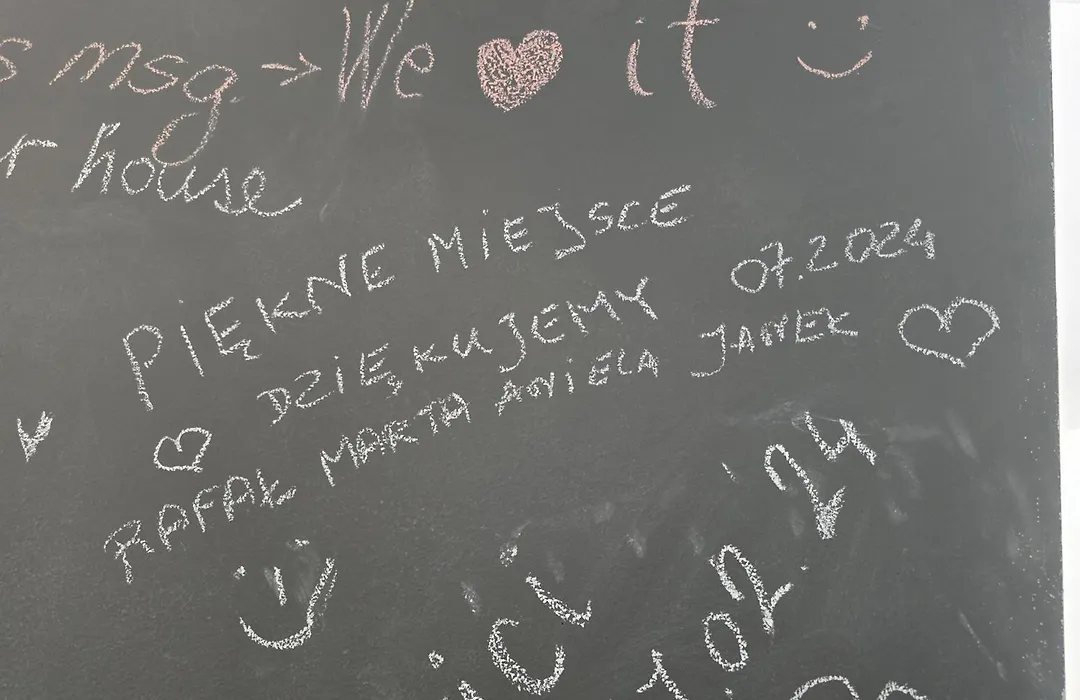 msg → We ♥ it
house
PIĘKNE MIEJSCE
DZIĘKUJEMY 07.2024
RAFAŁ MARTA ANIELA JANEK